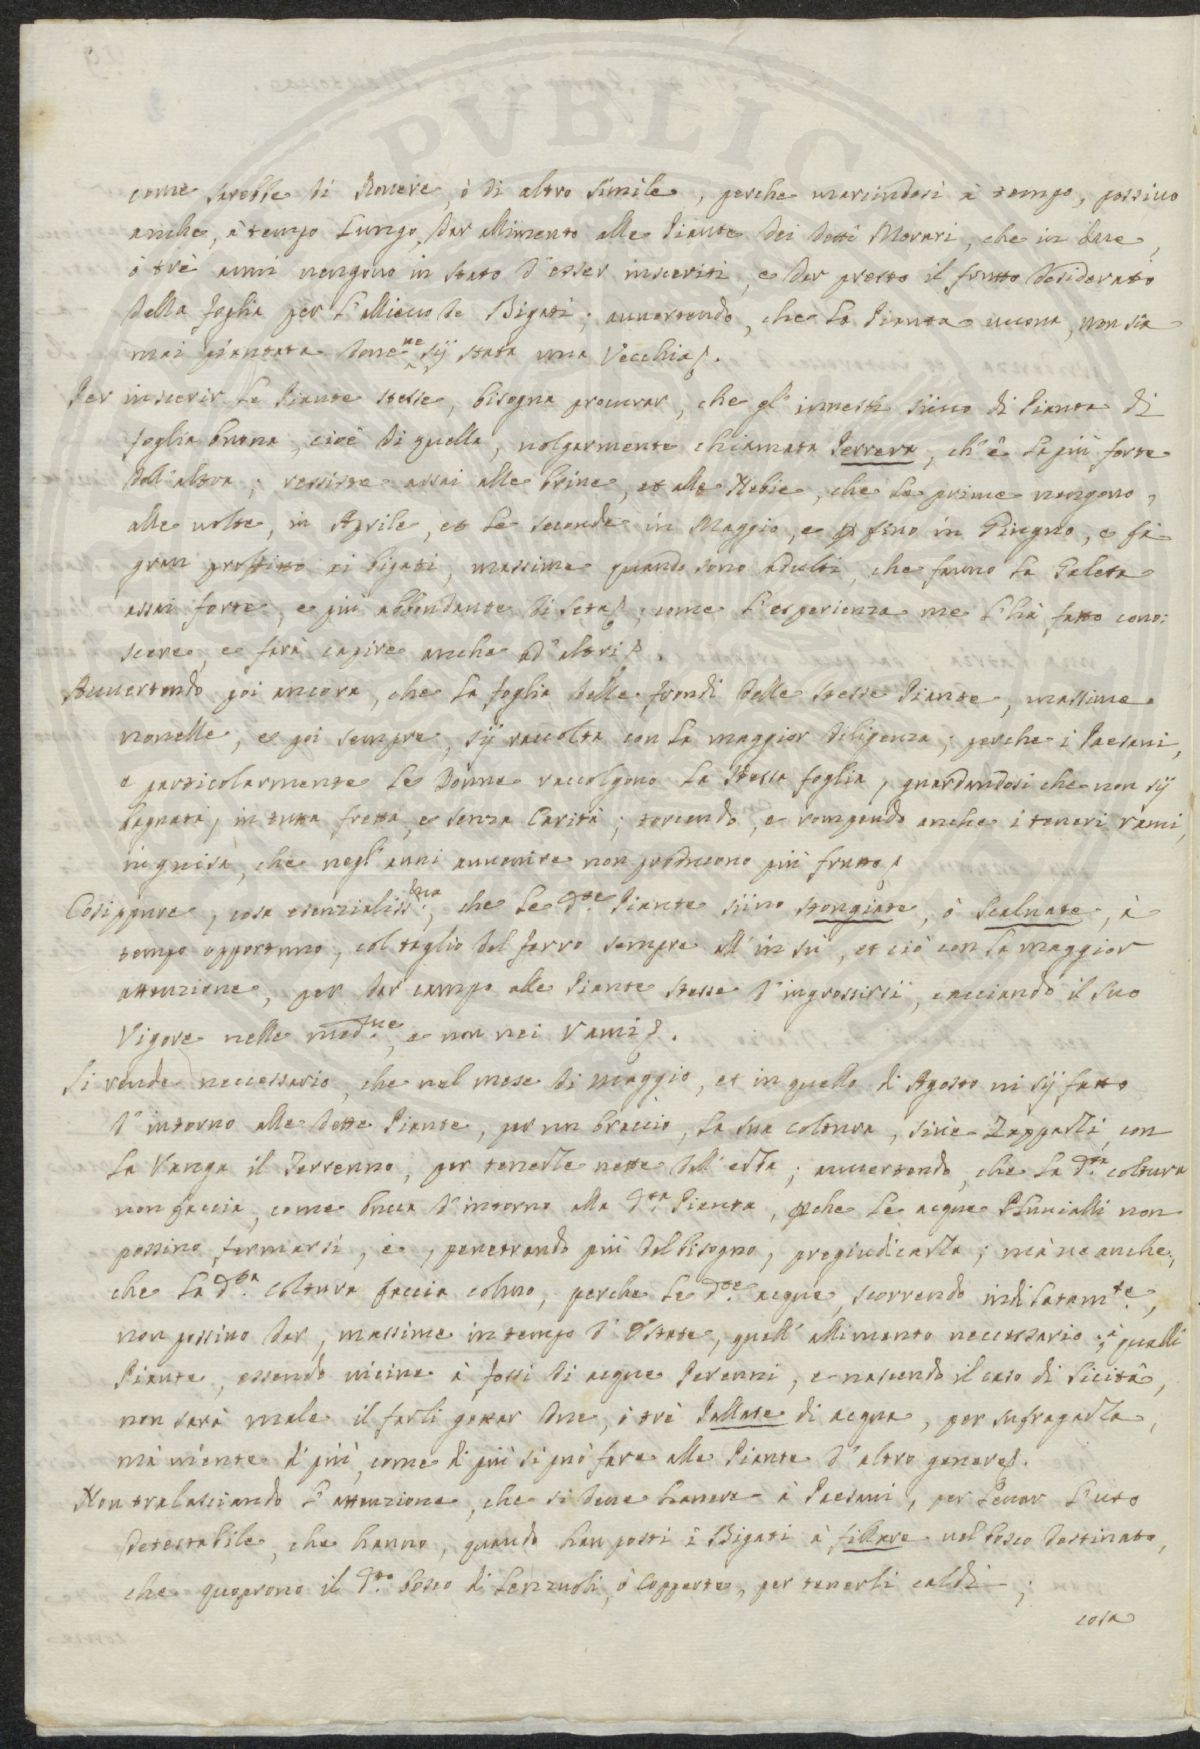 come sarebbe di Rovere, ò di altro simile, perche marcindosi à tempo, possino
anche, à tempo Lungo, dar allimento alle Piante dei detti Morari, che in due,
ò trè anni vengono in stato d'esser inseriti, e dar presto il frutto desiderato
della foglia per L'allievo de Bigati; avvertendo, che La Pianta nuova, non sia
mai piantata dove ve sij stata una Vecchia.
Per inserir Le Piante stesse, bisogna procurar, che gl'innesti siino di Pianta di
foglia buona, cioè di quella, volgarmente chiamata Ferrera, ch'è La più forte
dell'altra; ressiste assai alle brine, et alle Nebie, che Le prime vengono,
alle volte, in Aprile, et Le seconde in Maggio, e fino in Giugno, e fà
gran profitto ai bigati, massime quando sono adulti, che fanno La Galeta
assai forte, e più abbondante di seta; come L'esperienza me L'hà fatto cono:
scere, e farà capire anche ad'altri.
Avvertendo poi ancora, che La foglia delle frondi delle stesse Piante, massime
novelle, e poi sempre, sij raccolta con La maggior diligenza; perche i Paesani,
e particolarmente Le Donne raccolgono La stessa foglia, guardandosi che non sij
bagnata, in tutta fretta, e senza Carità; torcendo, e rompendo anche i teneri rami,
in guisa, che negl'anni avvenire non producono più frutto.
Cosi ppure, cosa esenzialiss.ma, che Le d.te Piante siino stongiate, ò Scalvate, à
tempo opportuno, col taglio del ferro sempre all'in sù, et ciò con La maggior
attenzione, per dar campo alle Piante stesse d'ingrossirsi, cacciando il suo
Vigore nelle med.me, e non nei rami.
Si rende necessario, che nel mese di Maggio, et in quello di Agosto vi sij fatto
d'intorno alle dette Piante, per un braccio, La sua coltura, sive Zapparli con
La Vanga il Terrenno, per tenerle nette dall'erba; avvertendo, che La d.ta coltura
non faccia, come buca d'intorno alla d.ta Pianta, pche Le acque Pluvialli non
possino fermarsi, e, penetrando più del bisogno, pregiudicarla; mà ne anche,
che La d.ta coltura faccia colmo, perche Le d.te acque, scorrendo indilatam.te,
non possino dar, massime in tempo d'Estate, quell'allimento necessario; à quelli
Piante, essendo vicine à fossi di acque Perenni, e nascendo il caso di Sicità,
non sarà male il farli gettar due, ò trè Pallate di acqua, per sufragarla,
mà niente di più, come di più si può fare alle Piante d'altro genere.
Non tralasciando L'attenzione, che si deve havere à Paesani, per Levar L'uso
detestabile, che hanno, quando han posti i Bigati à fillare nel bosco destinato,
che quoprono il d.to bosco di Lenzuoli, ò Copperte, per tenerli caldi;
cosa